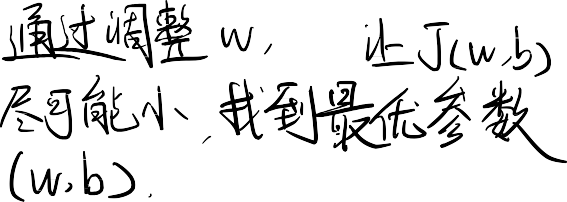 通过调整 w, 让 J(w,b)
尽可能小, 找到最优参数
(w,b).